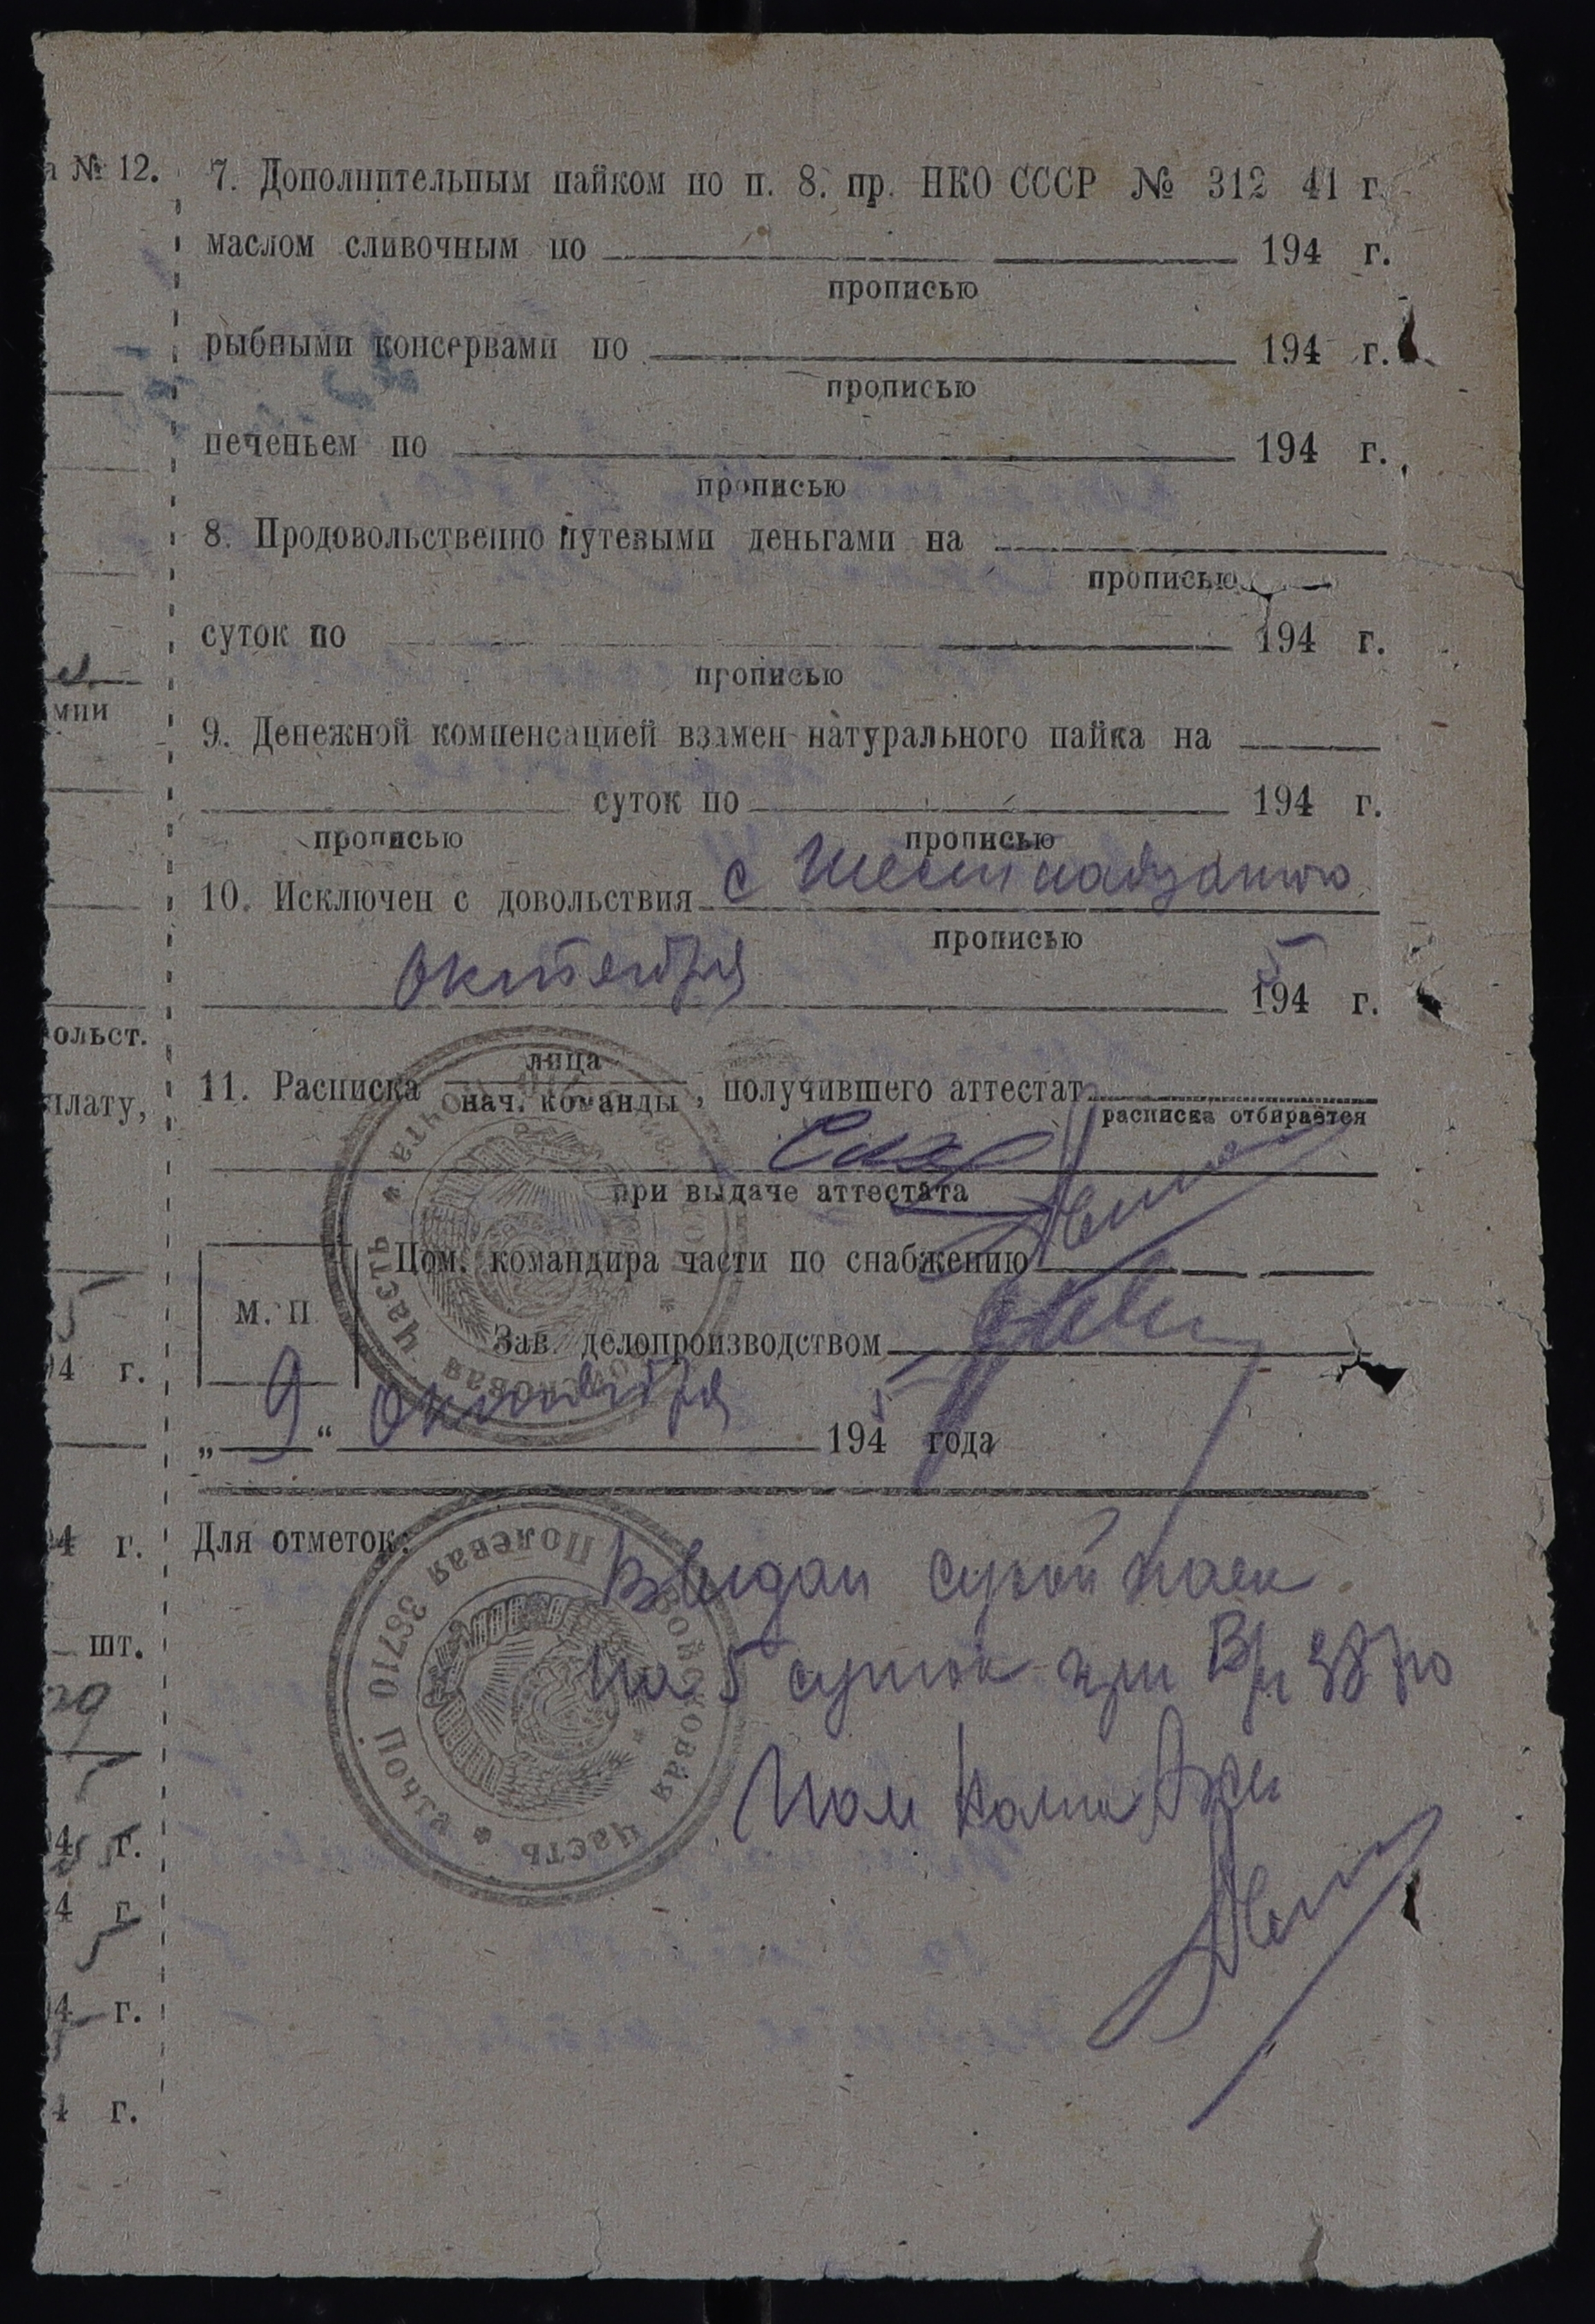 № 12.
7. Дополнительным пайком по п. 8. пр. НКО СССР № 312 41 г.
маслом сливочным по 194 г.
прописью
рыбными консервами по 194 г.
прописью
печеньем по 194 г.
прописью
8. Продовольственно путевыми деньгами на
прописью
суток по 194 г.
прописью
мии
9. Денежной компенсацией взамен натурального пайка на
суток по 194 г.
прописью прописью
10. Исключен с довольствия с шестнадцатого
прописью
октября 1945 г.
ольст.
11. Расписка лица
нач. команды, получившего аттестат
плату,
расписка отбирается
при выдаче аттестата
Пом. командира части по снабжению
М. П
Зав. делопроизводством
5
94 г.
„9“ октября 1945 года
4 г.
Для отметок:
Выдан сухой паек
шт.
на 5 суток при В/ч 38710
Пом Ком
4 г.
4 г.
4 г.
4 г.
Войсковая часть * Полевая почта *
Войсковая часть * Полевая 38710 Почта *